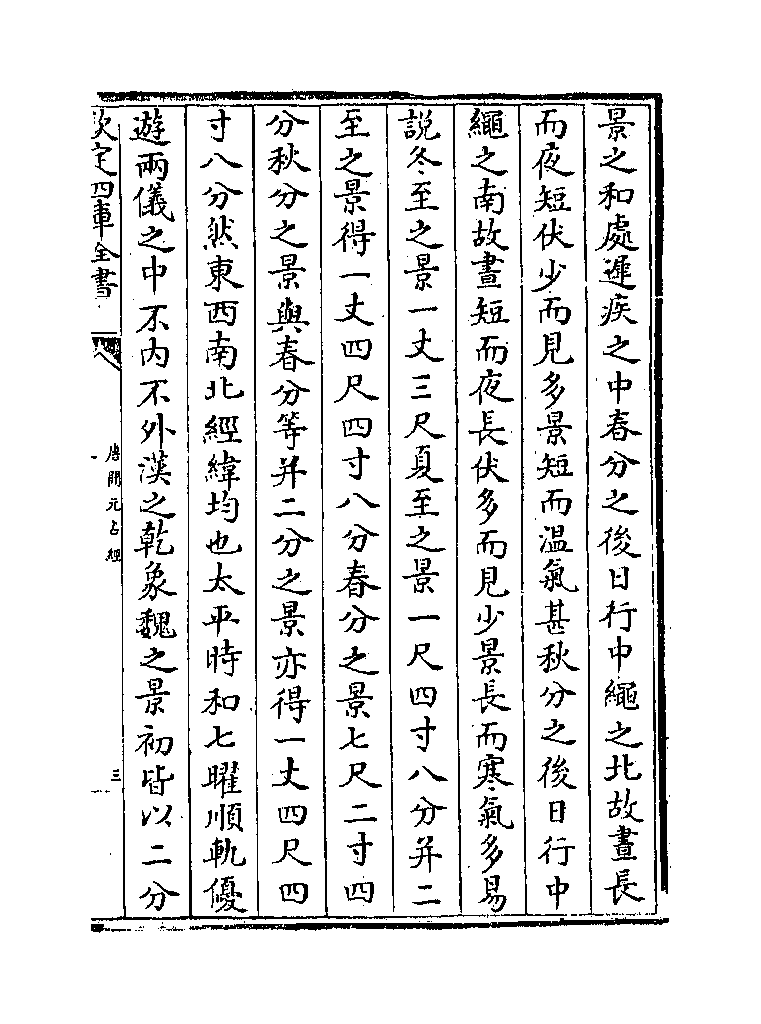 景之和處遲疾之中春分之後日行中繩之北故晝長
而夜短伏少而見多景短而溫氣甚秋分之後日行中
繩之南故晝短而夜長伏多而見少景長而寒氣多易
說冬至之景一丈三尺夏至之景一尺四寸八分并二
至之景得一丈四尺四寸八分春分之景七尺二寸四
分秋分之景與春分等并二分之景亦得一丈四尺四
寸八分然東西南北經緯均也太平時和七曜順軌優
遊兩儀之中不内不外漢之乾象魏之景初皆以二分
欽定四庫全書
唐開元占經
三